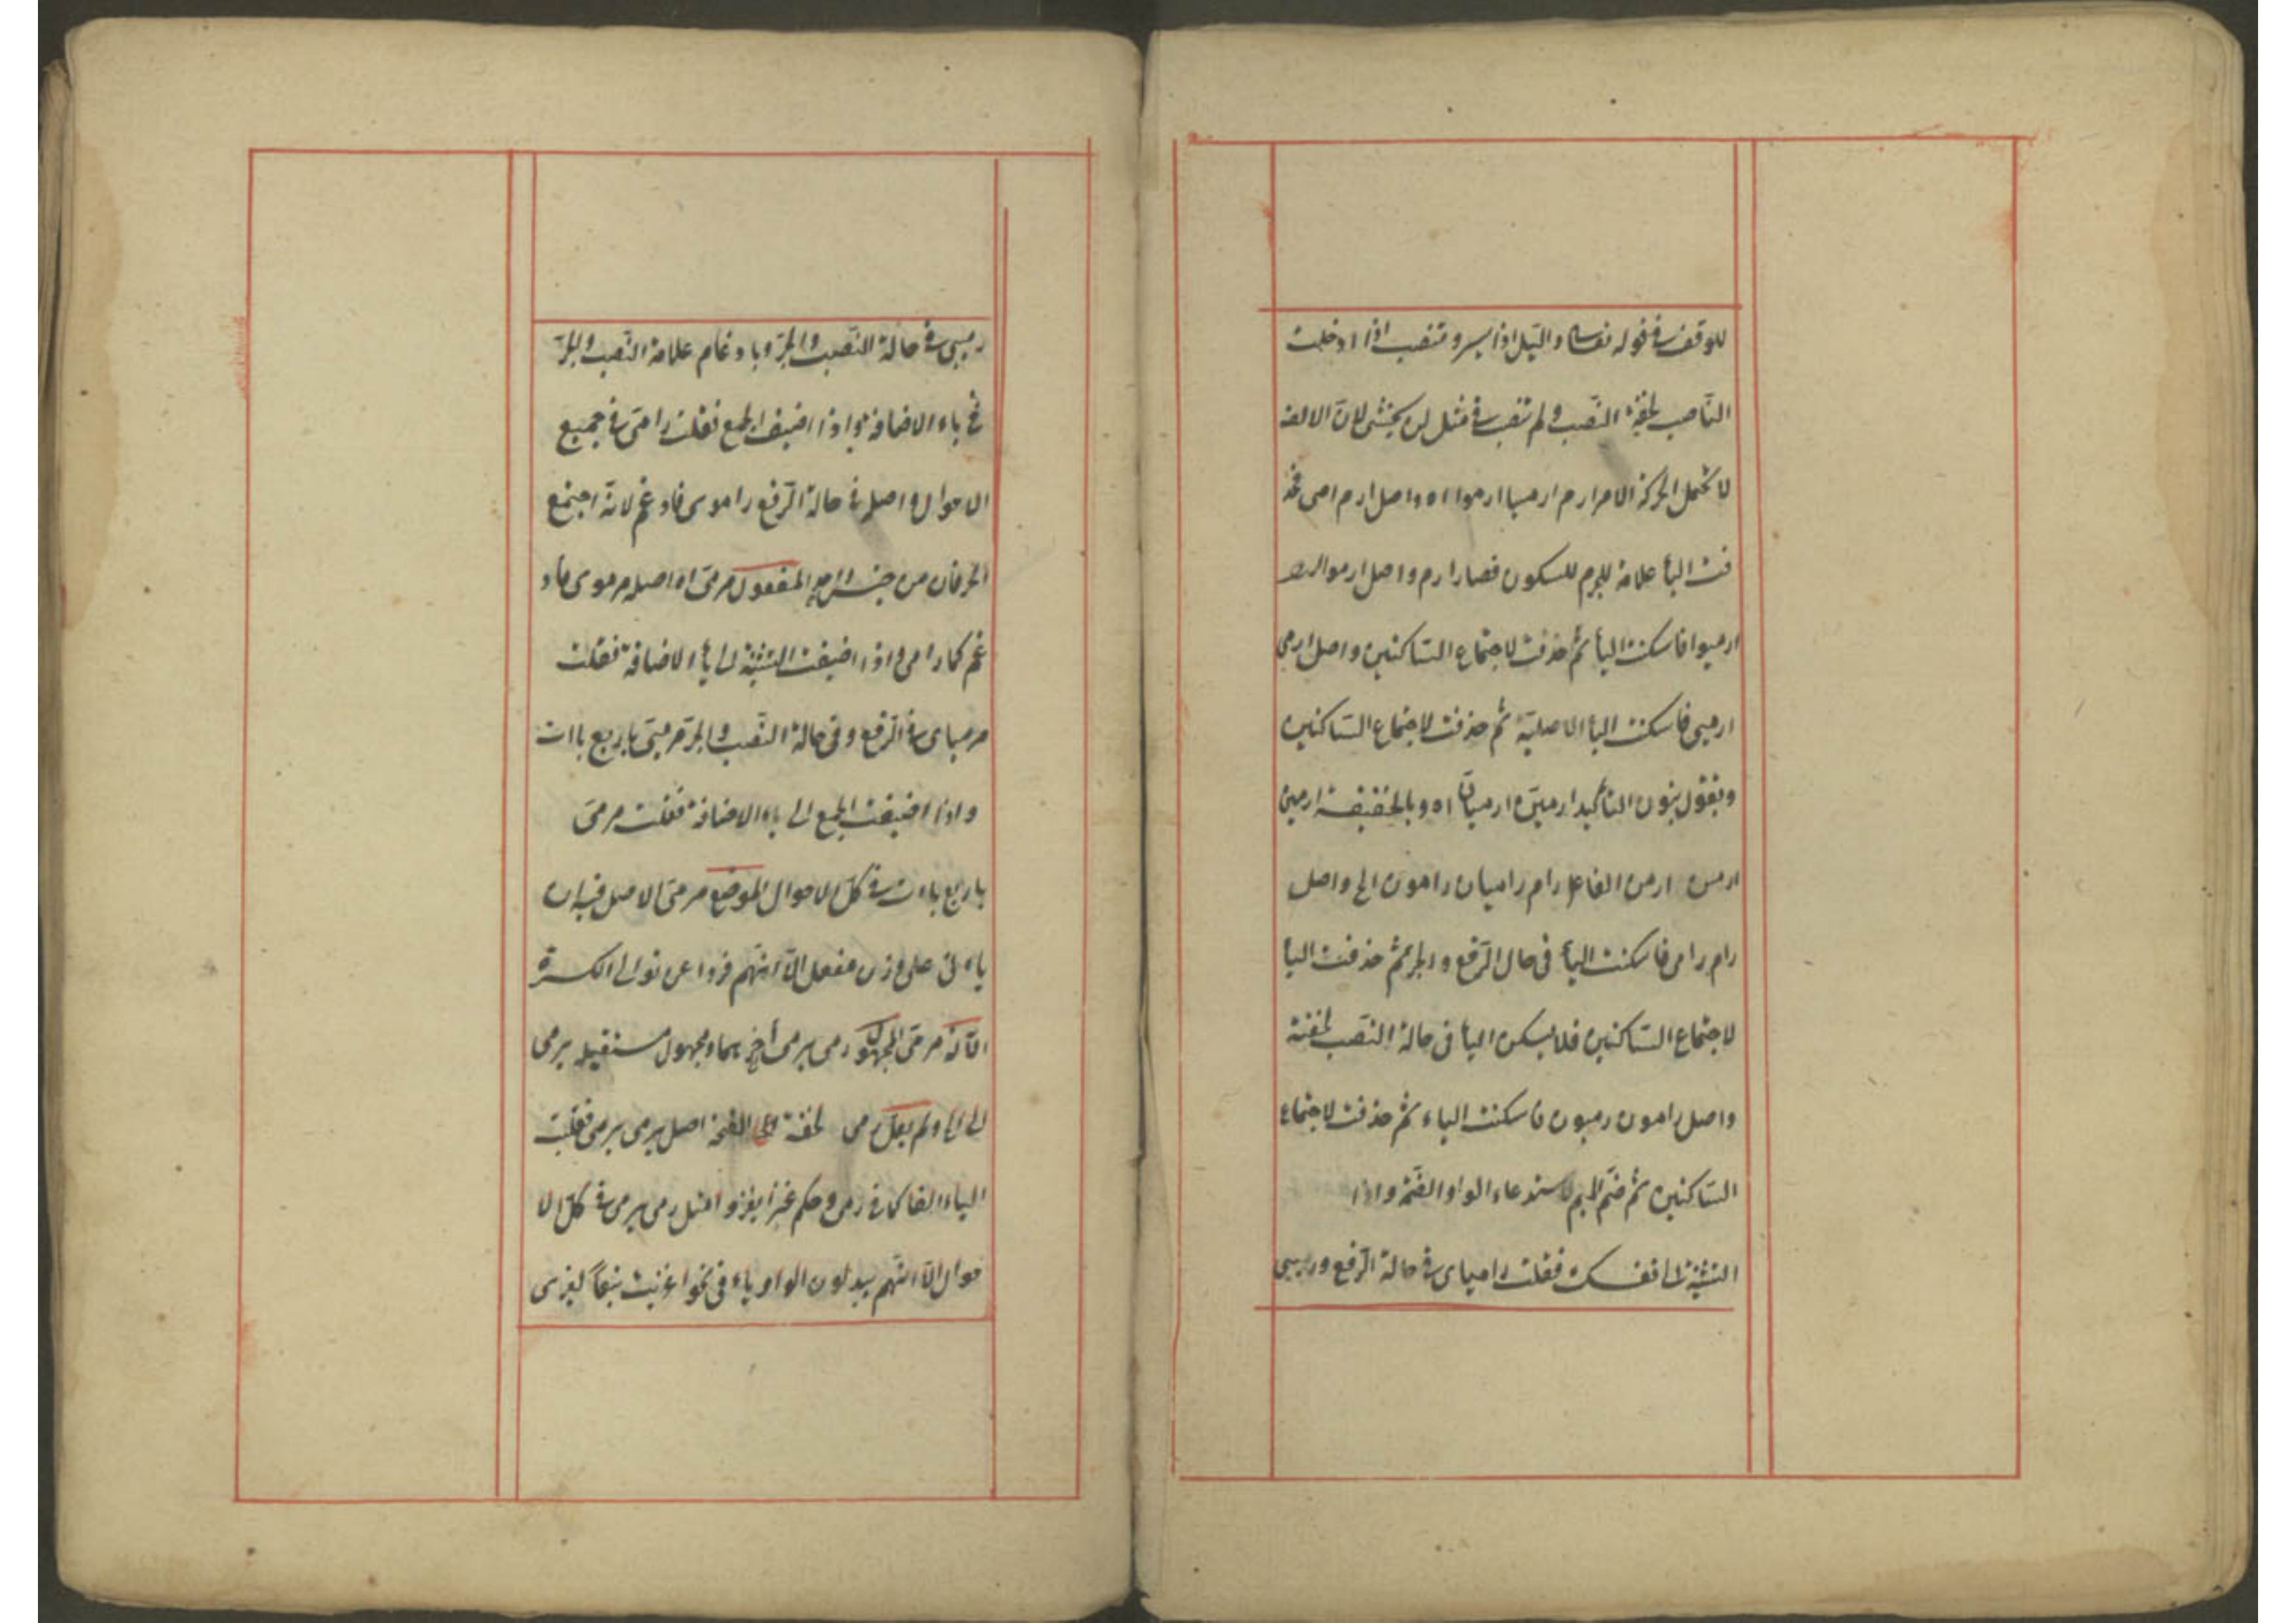 للوقف في قوله تعالى والليل اذا يسر وتنصب اذا ادخلت
الناصب لخفة النصب ولم تنصب في مثل لن يخشى لان الالف
لا تحتمل الحركة الامر ارم ارميا ارموا اه واصل ارم ارمى فحذ
فت اليأ علامة للجزم للسكون فصار ارم واصل ارموا
ارميوا فاسكنت اليأ ثم حذفت لاجتماع الساكنين واصل ارمى
ارميى فاسكنت اليأ الاصلية ثم حذفت لاجتماع الساكنين
وتقول بنون التأكيد ارمينّ ارميانّ اه وبالخفيفة ارمين
ارمن ارمن الفاعل رام راميان رامون الخ واصل
رام رامى فاسكنت اليأ فى حال الرفع والجر ثم حذفت اليأ
لاجتماع الساكنين فلا يسكن اليأ فى حالة النصب لخفته
واصل رامون رميون فاسكنت الياء ثم حذفت لاجتماع
الساكنين ثم ضم الميم لاستدعاء الواو الضمة واذا
التثنية الى نفسك فقلت راميلى في حالة الرفع ورميى
رميى في حالة النصب والجر وبادغام علامة النصب والجر
فى ياء الاضافة واذا اضيف الجمع فقلت رامى فى جميع
الاحوال واصله فى حالة الرفع راموى فادغم لانه اجتمع
الحرفان من جنس واحد المفعول مرمى اه اصله مرموى فاد
غم كما رامى واذا اضيفت التثنية الى يأ الاضافة فقلت
مرمياى فى الرفع وفى حالة النصب والجر مرميى باربع ياات
واذا اضيفت الجمع الى ياء الاضافة فقلت مرمى
باربع ياات فى كل الاحوال الموضع مرمى الاصل فيه ان
يأتى على وزن مفعل الا انهم فروا عن توالى الكسرة
الآلة مرمى المجهول رمى يرمى الخ مجهول مستقبله يرمى
الى الخ ولم يعل رمى لخفة الفتحة اصل يرمى يرمى فقلبت
الياء الفا كما فى رمى وحكم غزا يغزو مثل رمى يرمى فى كل الا
حوال الا انهم يبدلون الواو ياء فى نحو اغزيت تبعا ليغزى